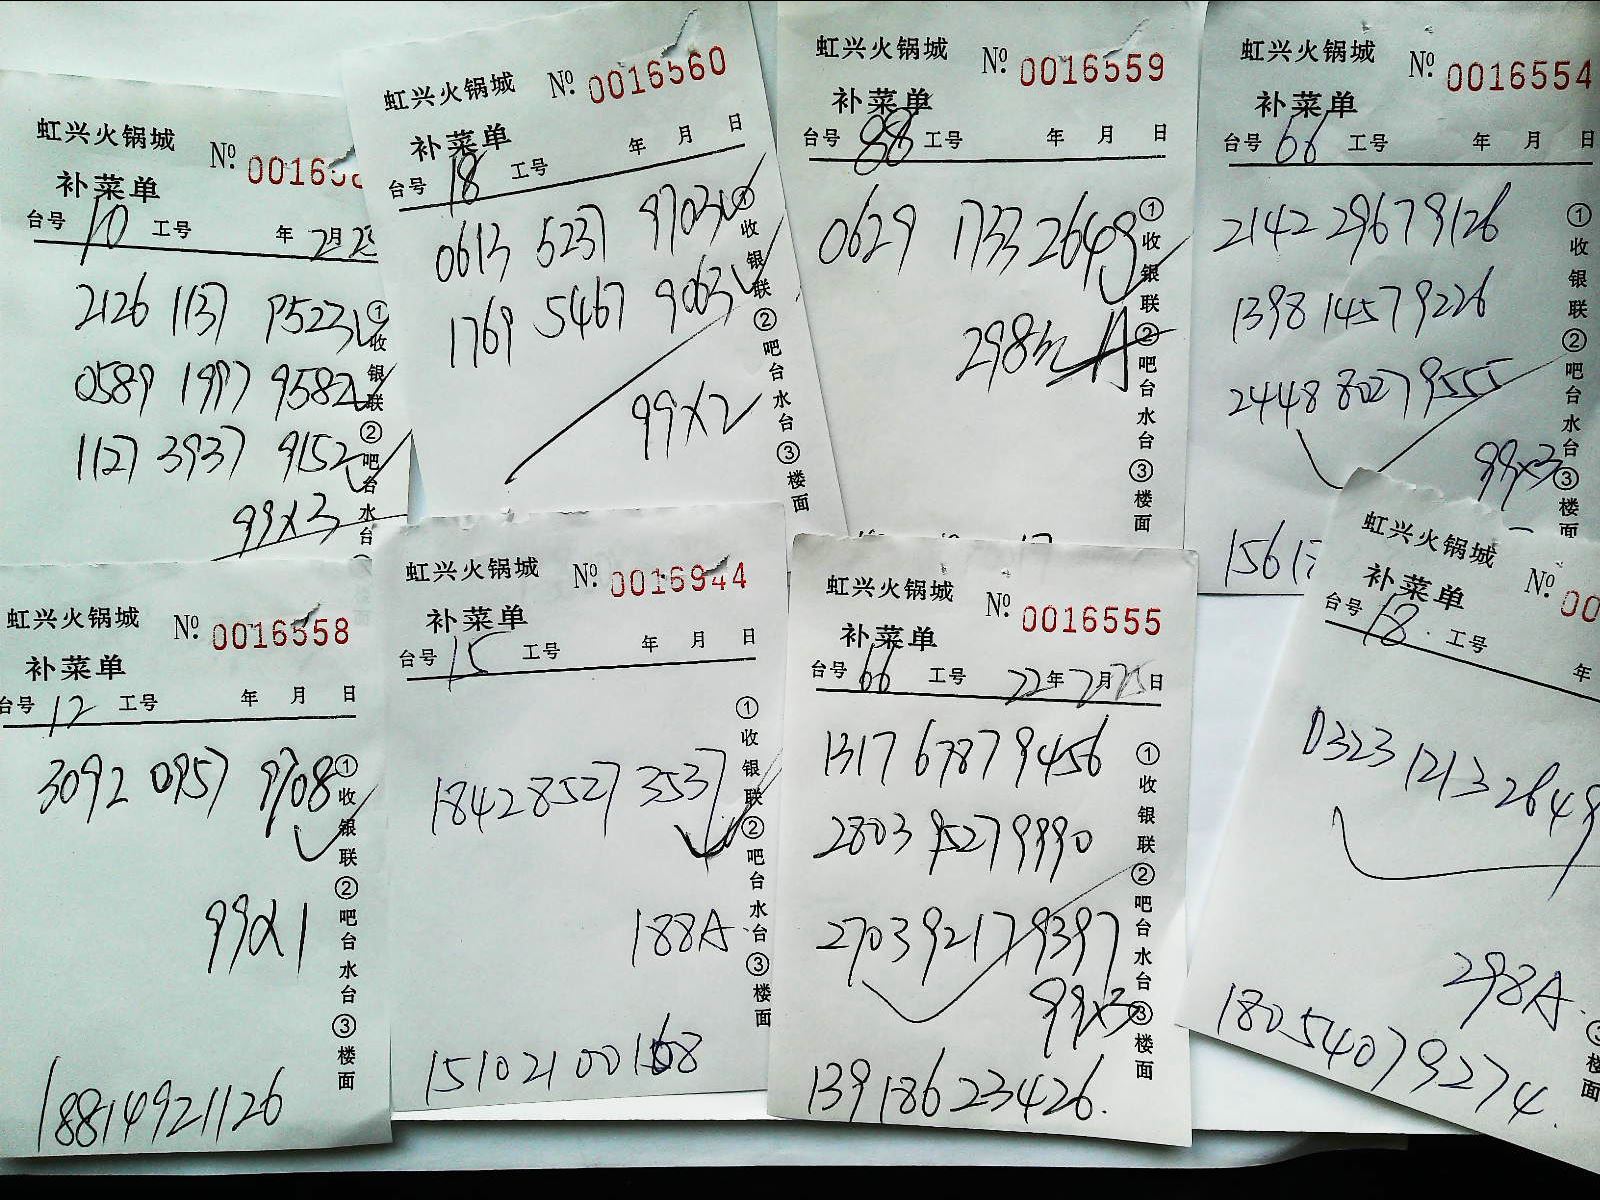 虹兴火锅城 Nº 00165
补菜单
台号 10 工号 年 2月25
2126 1137 9523
0589 1997 9582
1127 3937 9152
99x3
①收银联②吧台水台
虹兴火锅城 Nº 0016560
补菜单
台号 18 工号 年 月 日
0613 5237 9703
1769 5467 9063
99x2
①收银联②吧台水台③楼面
虹兴火锅城 Nº 0016559
补菜单
台号 88 工号 年 月 日
0629 1733 2649
298元 A
①收银联②吧台水台③楼面
虹兴火锅城 Nº 0016554
补菜单
台号 66 工号 年 月 日
2142 2967 9126
1398 1457 9226
2448 8027 9555
99x3
1561
①收银联②吧台水台③楼面
虹兴火锅城 Nº 0016558
补菜单
台号 12 工号 年 月 日
3092 0957 9708
99x1
18814921126
①收银联②吧台水台③楼面
虹兴火锅城 Nº 0016944
补菜单
台号 15 工号 年 月 日
1842 8527 3537
188A
15102100168
①收银联②吧台水台③楼面
虹兴火锅城 Nº 0016555
补菜单
台号 66 工号 22年2月25日
1317 6787 9456
2803 9527 9990
2703 9217 9397
99x3
13918623426.
①收银联②吧台水台③楼面
虹兴火锅城 Nº 00
补菜单
台号 18. 工号 年
0323 1213 2649
298A.
18054079274.
③楼面